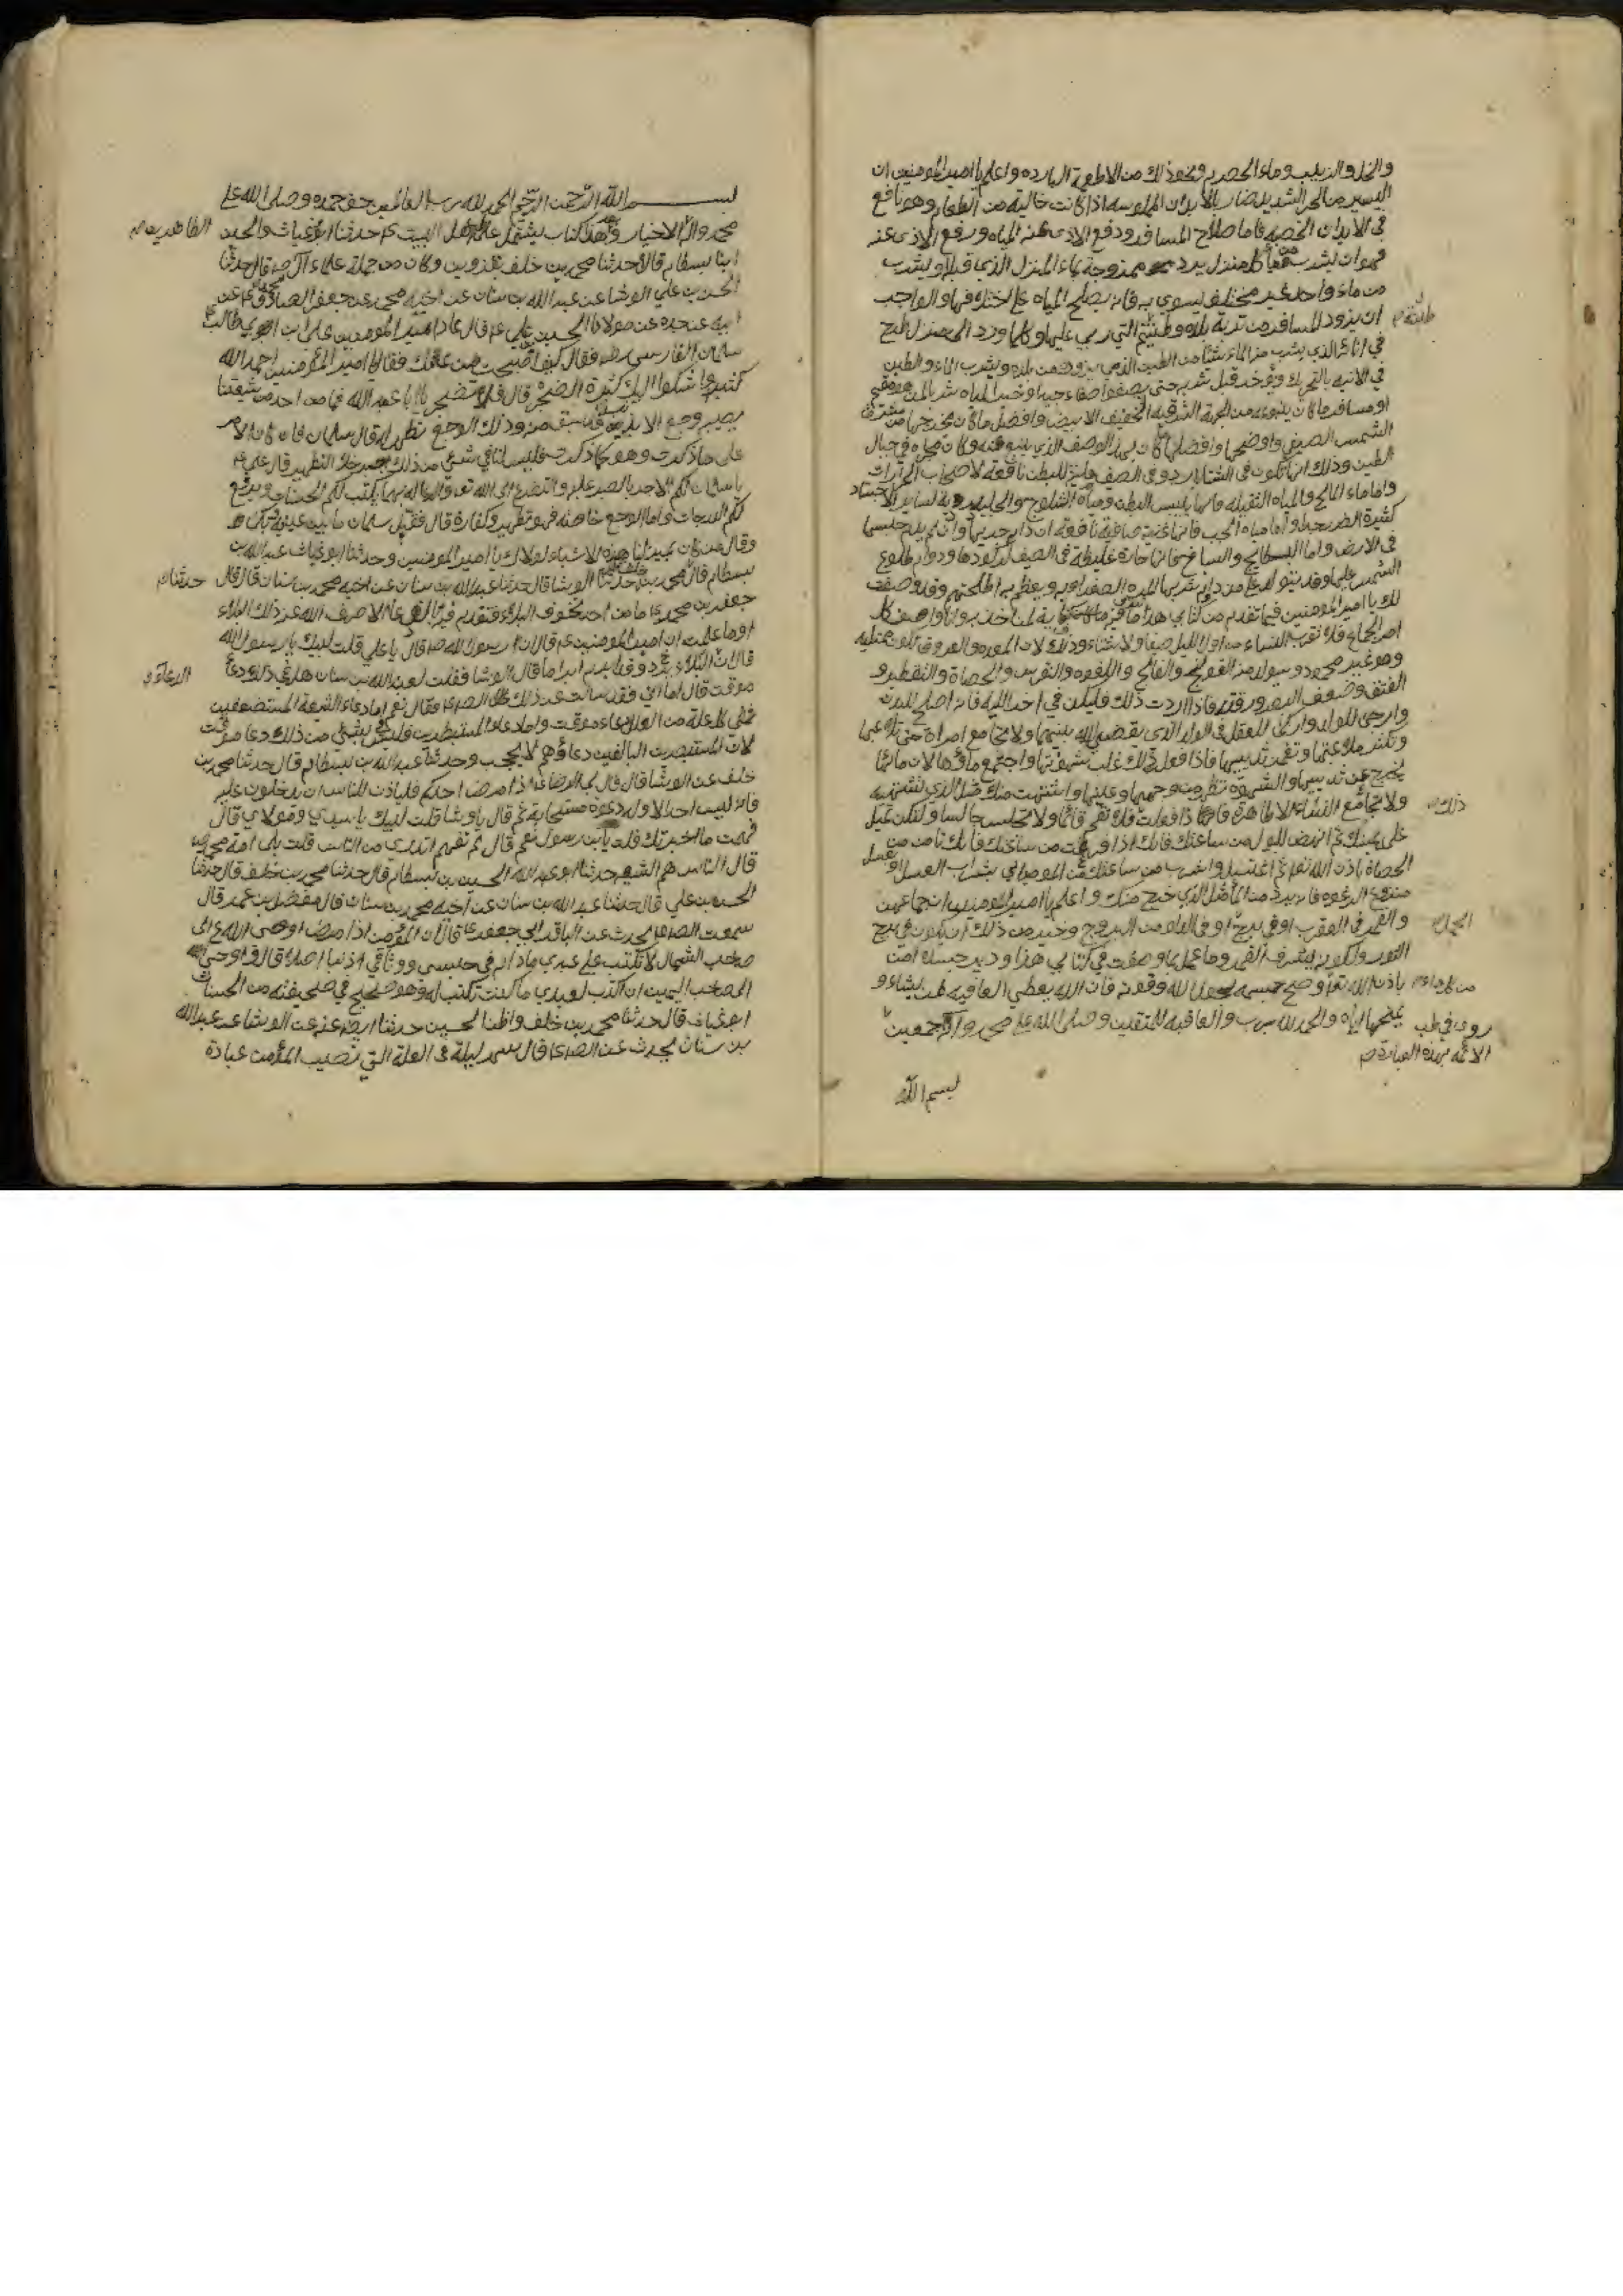 والخل والزبيب وماء الحصرم ونحو ذلك من الاطعمة البارده واعلم يا امير المؤمنين ان
السير في الحر الشديد ضار بالأبدان المهلوسه اذا كانت خالية من الطعام وهو نافع
في الابدان الخصبه فاما صلاح المسافر ودفع الاذى عنه المياه ودفع الاذى عنه
فهو ان يشرب من ماء كل منزل يرده ممزوجة بماء المنزل الذي قبله او يشرب
من ماء واحد غير مختلف يسوي به فانه يصلح المياه على اختلافها والواجب
ان يزود المسافر من تربة بلده وطينته التي ربي عليها وكلما ورد الى منزل طرح
في انائه الذي يشرب منه الماء شيئا من الطين الذي يزوده من بلده ويشرب الماء والطين
في الانيه بالتحريك ويؤخذ قبل شربه حتى يصفوا صفاء جيدا وخير المياه شربا لمن هو مقيم
او مسافر ما كان ينبوعه من الجهة الشرقيه الخفيف الابيض وافضل ما كان مخرجها من مشرق
الشمس الصيفي واوضحها وافضلها ما كان بهذا الوصف الذي ينبع منه وكان مجراه في جبال
الطين وذلك انها تكون في الشتاء بارده وفي الصيف ملينة للبطن نافعة لاصحاب الحرارات
واما ماء المالح والمياه الثقيله فانها ييبس البطن ومياه الثلوج والجليد رديه لسائر الاجساد
كثيرة الضرر جدا واما مياه الجب فانها عذبة صافية نافعة ان دام جريها وان لم يدم حبسها
في الارض واما البطايح والسباخ فانها حارة غليظة في الصيف لركودها ودوام طلوع
الشمس عليها وقد يتولد على من داوم شربها المره الصفراويه ويعظم به اطحلتهم وقد وصفت
لك يا امير المؤمنين فيما تقدم من كتابي هذا ما فيه كفاية لمن اخذ به وانا واصف كل
امر الجماع فلا تقرب النساء من اول الليل صيفا ولا شتاء وذلك لان المعده والعروق تكون ممتليه
وهو غير محمود ويتولد منه القولنج والفالج واللقوه والنقرس والحصاة والتقطير و
الفتق وضعف البصر ورقته فاذا اردت ذلك فليكن في اخر الليل فانه اصلح للبدن
وارجى للولد وازكى للعقل في الولد الذي يقضي الله بينهما ولا تجامع امراة حتى تلاعبها
وتكثر ملاعبتها وتغمز ثدييها فاذا فعلت ذلك غلبت شهوتها واجتمع ماؤها لان ماءها
يخرج من ثدييها والشهوة تظهر من وجهها وعينيها واشتهت منك مثل الذي تشتهيه
ذلك
ولا تجامع النساء الا طاهرة فاذا فعلت فلا تقم قائما ولا تجلس جالسا ولكن تميل
على يمينك ثم انهض للبول من ساعتك فانك اذا فرغت من ساعتك فانك تامن من
الحصاة باذن الله تعالى ثم اغتسل واشرب من ساعتك من الموميائي بشراب العسل او عسل
منزوع الرغوه فانه يرد من الماء مثل الذي خرج منك واعلم يا امير المؤمنين ان جماعهن
والقمر في العقرب او في برج او في الدلو من البروج وخير من ذلك ان يكون في برج
الثور ولكونه بشرف القمر وما عمل بما وصفت في كتابي هذا ودبر جسده امن
باذن الله تعالى وصح جسمه بحول الله وقوته فان الله يعطي العافيه لمن يشاء و
يمنحها اياه والحمد لله رب والعاقبة للمتقين وصلى الله على محمد واله اجمعين
روي في طب
الائمه بهذه العبارة
بسم الله
بسم الله الرحمن الرحيم الحمد لله رب العالمين حق حمده وصلى الله على
محمد وال الاخيار وبعد هذا كتاب يشتمل على طب اهل البيت ع حدثنا ابو غياث والحسين
الطاهرين
ابنا بسطام قالا حدثنا محمد بن خلف بقزوين وكان من جملة علماء آل محمد قال حدثنا
الحسن بن علي الوشا عن عبد الله بن سنان عن اخيه محمد عن جعفر الصادق ع عن
ابيه عن جده عن مولانا الحسين بن علي ع قال عاد امير المؤمنين علي بن ابي طالب ع
سلمان الفارسي ره فقال كيف اصبحت من علتك فقال يا امير المؤمنين احمد الله
كثيرا واشكوا اليك كثرة الضجر قال فلا تضجر يا ابا عبد الله فما من احد من شيعتنا
يصيبه وجع الا بذنب قد سبق منه وذلك الوجع تطهير له قال سلمان فان كان الامر
على ما ذكرت وهو كما ذكرت فليس لنا في شئ من ذلك اجر خلا التطهير قال علي ع
يا سلمان لكم الاجر بالصبر عليه والتضرع الى الله تعالى والدعاء له بهما يكتب لكم الحسنات ويرفع
لكم الدرجات واما الوجع خاصه فهو تطهير وكفارة قال فقبل سلمان ما بين عينيه وبكا
وقال من كان يميز لنا هذه الاشياء لولاك يا امير المؤمنين وحدثنا ابو غياث عبد الله بن
بسطام قال محمد بن خلف حدثنا الوشا قال حدثنا عبد الله بن سنان عن اخيه محمد بن سنان قال قال
حدثنا
جعفر بن محمد ع ما من احد تخوف البلاء فتقدم فيه بالدعاء الا صرف الله عنه ذلك البلاء
اوما علمت ان امير المؤمنين ع قال ان رسول الله ص قال يا علي قلت لبيك يا رسول الله
قال ان الدعاء يرد البلاء وقد ابرم ابراما قال الوشا فقلت لعبد الله بن سنان هل في ذلك دعاء
الدعاء
موقت قال اما اني فقد سالت عن ذلك الصادق ع فقال نعم اما دعاء الشيعة المستضعفين
ففي كل علة من العلل دعاء موقت واما دعاء المستبصرين فليس في شئ من ذلك دعا موقت
لان المستبصرين البالغين دعاؤهم لا يحجب وحدثنا عبد الله بن بسطام قال حدثنا محمد بن
خلف عن الوشا قال قال لي الرضا ع اذا مرض احدكم فلياذن للناس ان يدخلون عليه
فانه ليس احد الا وله دعوة مستجابة ثم قال يا وشا قلت لبيك يا سيدي ومولاي قال
فهمت ما اخبرتك قلت يا ابن رسول نعم قال لم تفهم اتدري من الناس قلت بلى امة محمد
قال الناس هم الشيعه حدثنا ابو عبد الله الحسين بن بسطام قال حدثنا محمد بن خلف قال حدثنا
الحسن بن علي قال حدثنا عبد الله بن سنان عن اخيه محمد بن سنان قال مفضل بن عمر قال
سمعت الصادق ع يحدث عن الباقر ابي جعفر ع قال ان المؤمن اذا مرض اوحى الله ع الى
صاحب الشمال لا تكتب على عبدي ما دام في حبسي ووثاقي ذنبا ابدا قال واوحى الله
الى صاحب اليمين ان اكتب لعبدي ما كنت تكتب له وهو صحيح في صحيفته من الحسنات
ابو غياث قال حدثنا محمد بن خلف واظنا لحسين حدثنا ايضا عنه عن الوشا عن عبد الله
بن سنان يحدث عن الصادق ع قال سهر ليلة في العلة التي تصيب المؤمن عبادة